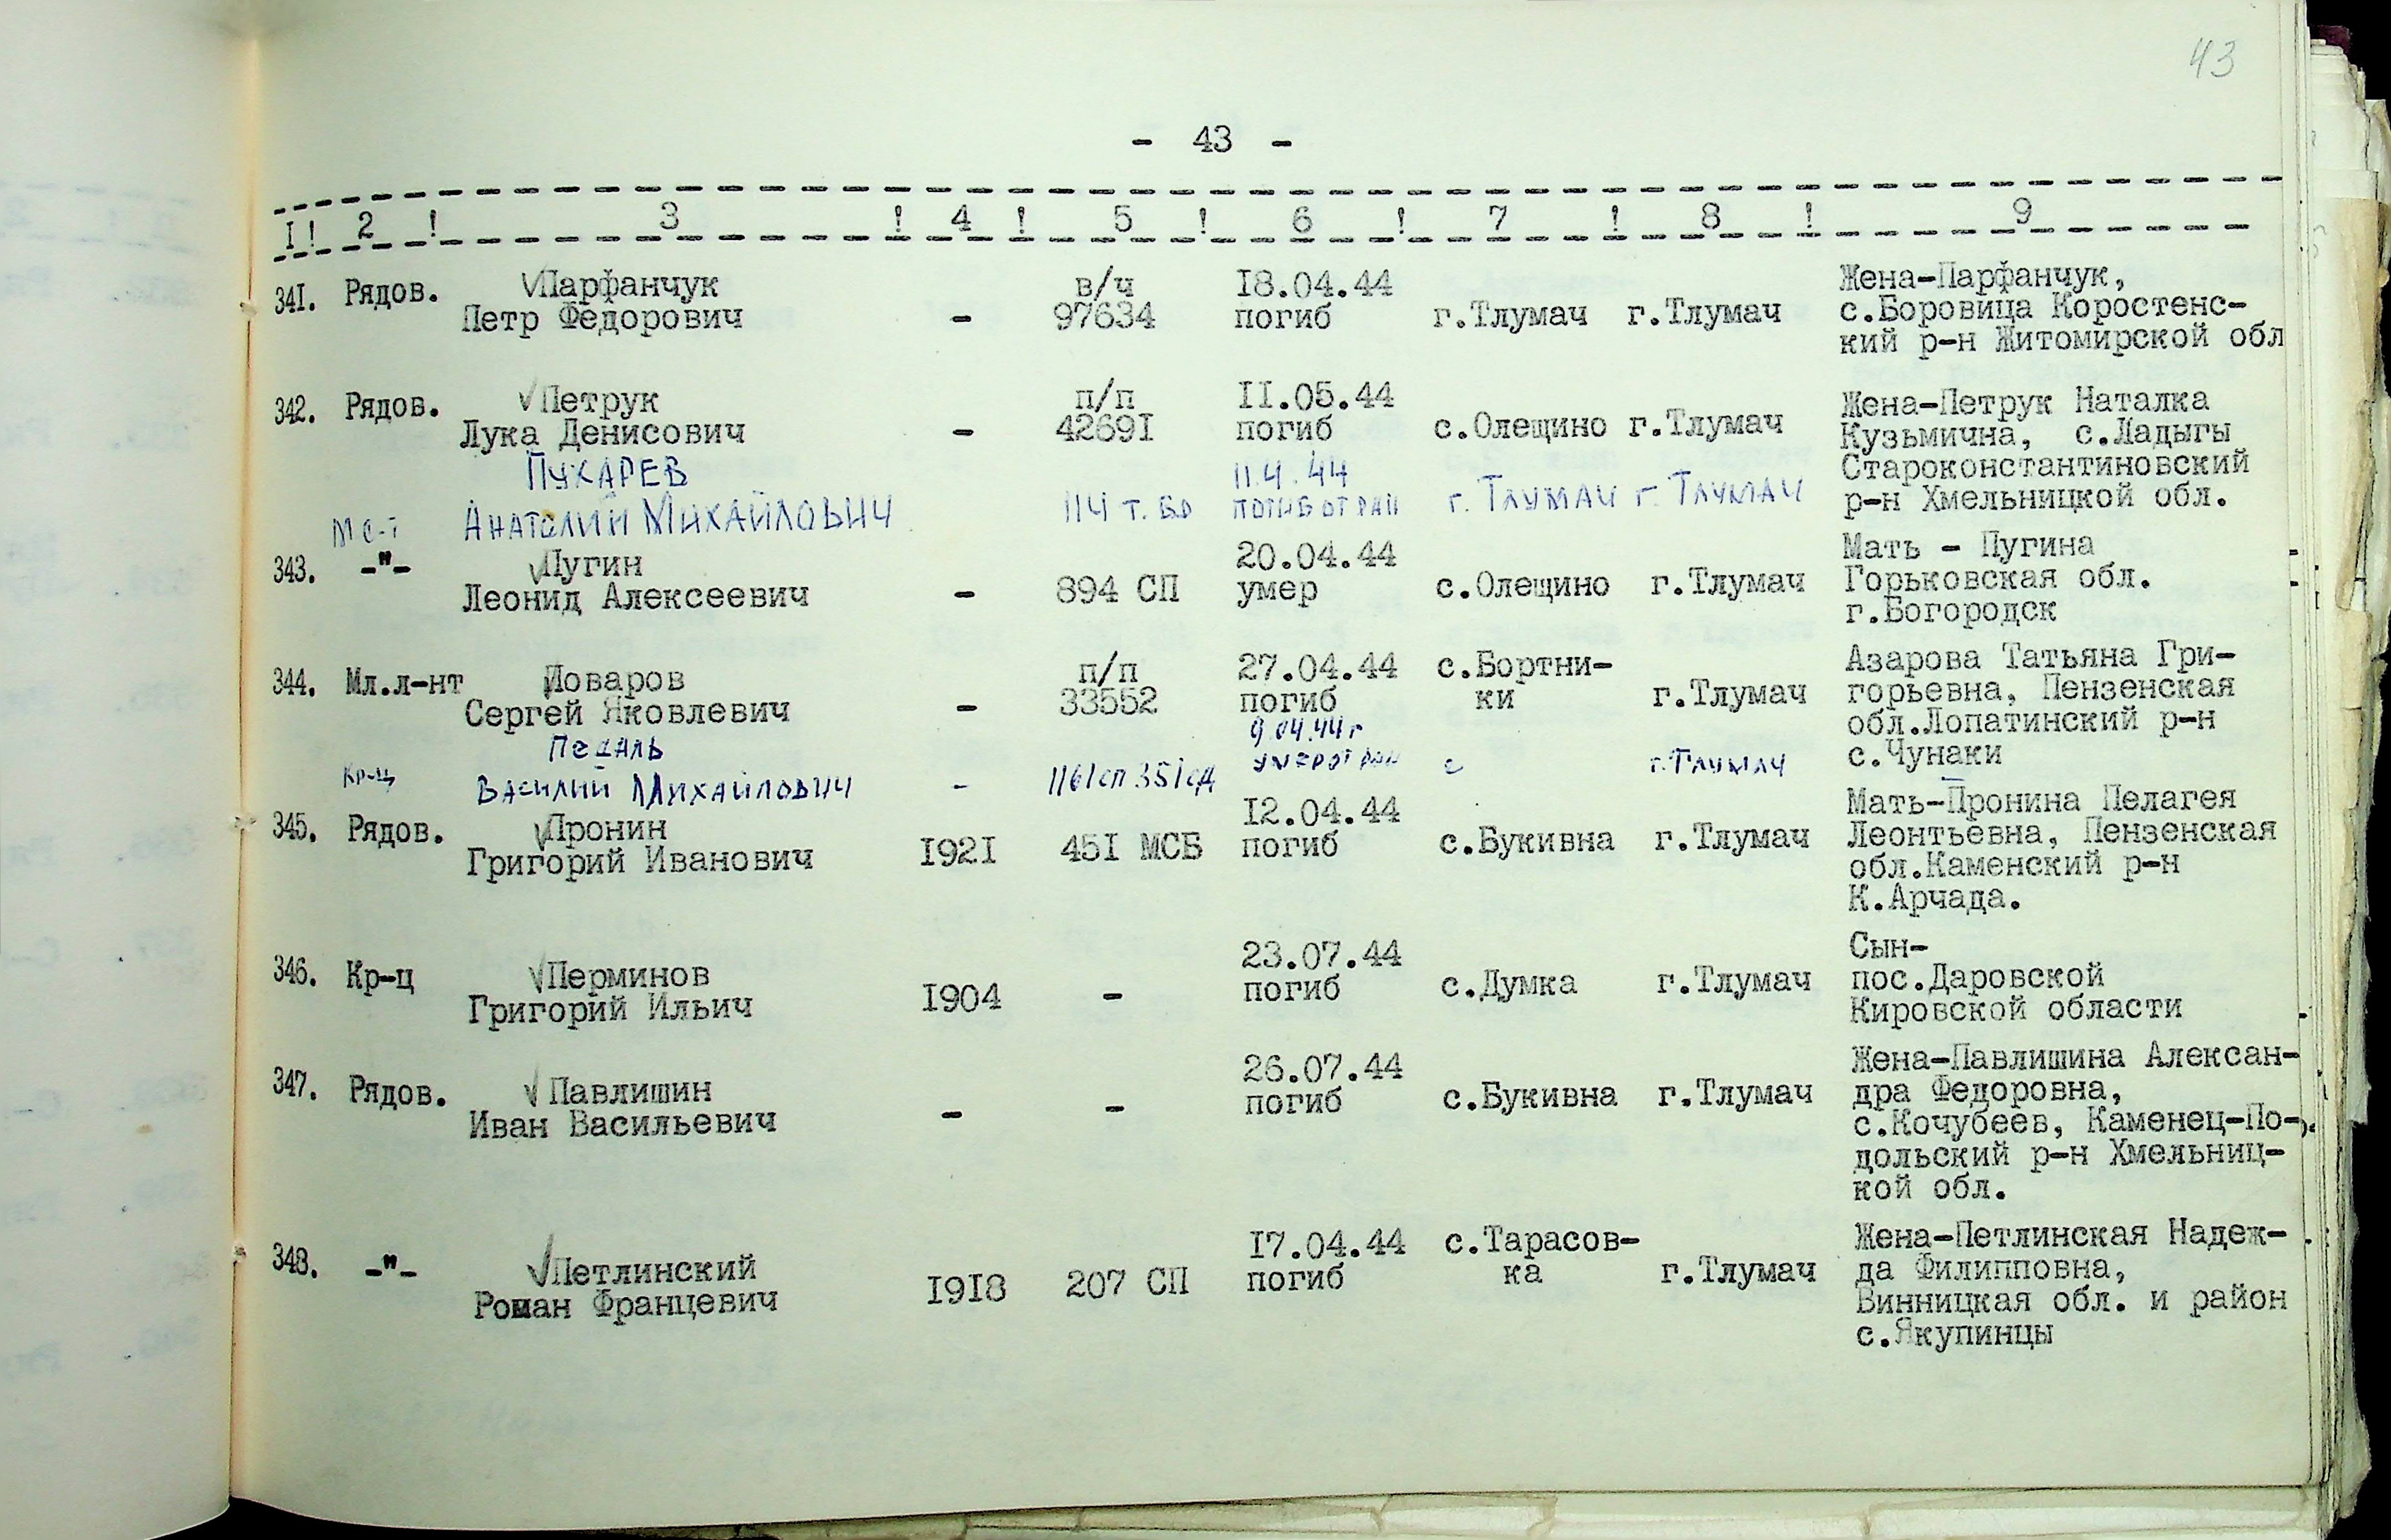 43
- 43 -
I ! 2 ! 3 ! 4 ! 5 ! 6 ! 7 ! 8 ! 9
Парфанчук в/ч 18.04.44 Жена-Парфанчук,
341. Рядов. Петр Федорович - 97634 погиб г.Тлумач г.Тлумач с.Боровица Коростенс-
кий р-н Житомирской обл
Петрук п/п II.05.44 Жена-Петрук Наталка
342. Рядов. Лука Денисович - 4269I погиб с.Олещино г.Тлумач Кузьмична, с.Ладыгы
Пухарев 11.4.44 Староконстантиновский
м с-т Анатолий Михайлович 114 т.бр погиб от ран г. Тлумач г. Тлумач р-н Хмельницкой обл.
Пугин 20.04.44 Мать - Пугина
343. -"- Леонид Алексеевич - 894 СП умер с.Олещино г.Тлумач Горьковская обл.
г.Богородск
Поваров п/п 27.04.44 с.Бортни- Азарова Татьяна Гри-
344. Мл.л-нт Сергей Яковлевич - 33552 погиб ки г.Тлумач горьевна, Пензенская
Педаль 9.04.44 г обл.Лопатинский р-н
кр-ц Василий Михайлович - 1161 сп 351 сд умер от ран с г.Тлумач с.Чунаки
Пронин I2.04.44 Мать-Пронина Пелагея
345. Рядов. Григорий Иванович I92I 45I МСБ погиб с.Букивна г.Тлумач Леонтьевна, Пензенская
обл.Каменский р-н
К.Арчада.
Перминов 23.07.44 Сын-
346. Кр-ц Григорий Ильич I904 - погиб с.Думка г.Тлумач пос.Даровской
Кировской области
Павлишин 26.07.44 Жена-Павлишина Алексан-
347. Рядов. Иван Васильевич - - погиб с.Букивна г.Тлумач дра Федоровна,
с.Кочубеев, Каменец-По-
дольский р-н Хмельниц-
кой обл.
Петлинский I7.04.44 с.Тарасов- Жена-Петлинская Надеж-
348. -"- Роман Францевич I918 207 СП погиб ка г.Тлумач да Филипповна,
Винницкая обл. и район
с.Якупинцы